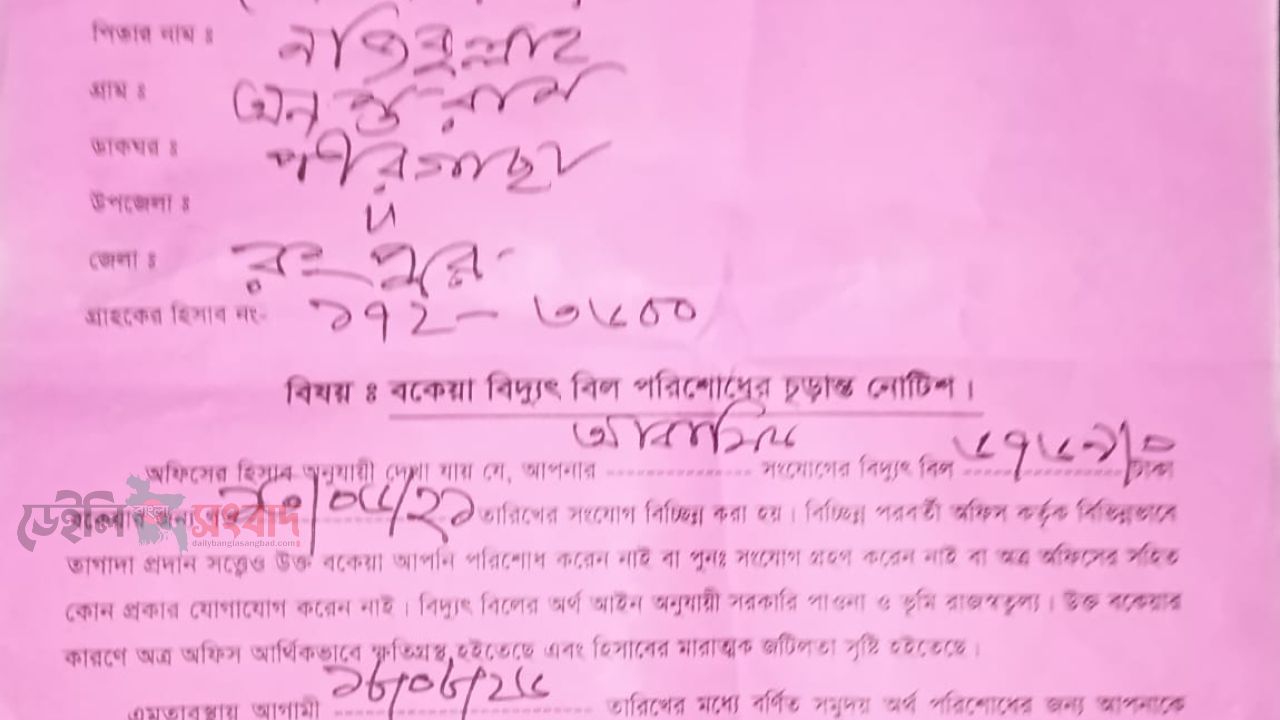 পিতার নাম ঃ
গ্রাম ঃ অনন্তরাম
ডাকঘর ঃ পীরগাছা
উপজেলা ঃ
জেলা ঃ রংপুর
গ্রাহকের হিসাব নং- ১৭২ - ৩৫০০
বিষয় ঃ বকেয়া বিদ্যুৎ বিল পরিশোধের চূড়ান্ত নোটিশ।
অফিসের হিসাব অনুযায়ী দেখা যায় যে, আপনার আবাসিক সংযোগের বিদ্যুৎ বিল টাকা
বকেয়ার জন্য গত তারিখের সংযোগ বিচ্ছিন্ন করা হয়। বিচ্ছিন্ন পরবর্তী অফিস কর্তৃক বিভিন্নভাবে
ডেইলি বাংলা সংবাদ
dailybanglasangbad.com
তাগাদা প্রদান সত্ত্বেও উক্ত বকেয়া আপনি পরিশোধ করেন নাই বা পুনঃ সংযোগ গ্রহণ করেন নাই বা অত্র অফিসের সহিত
কোন প্রকার যোগাযোগ করেন নাই। বিদ্যুৎ বিলের অর্থ আইন অনুযায়ী সরকারি পাওনা ও ভূমি রাজস্বতুল্য। উক্ত বকেয়ার
কারণে অত্র অফিস আর্থিকভাবে ক্ষতিগ্রস্থ হইতেছে এবং হিসাবের মারাত্মক জটিলতা সৃষ্টি হইতেছে।
এমতাবস্থায় আগামী তারিখের মধ্যে বর্ণিত সমুদয় অর্থ পরিশোধের জন্য আপনাকে